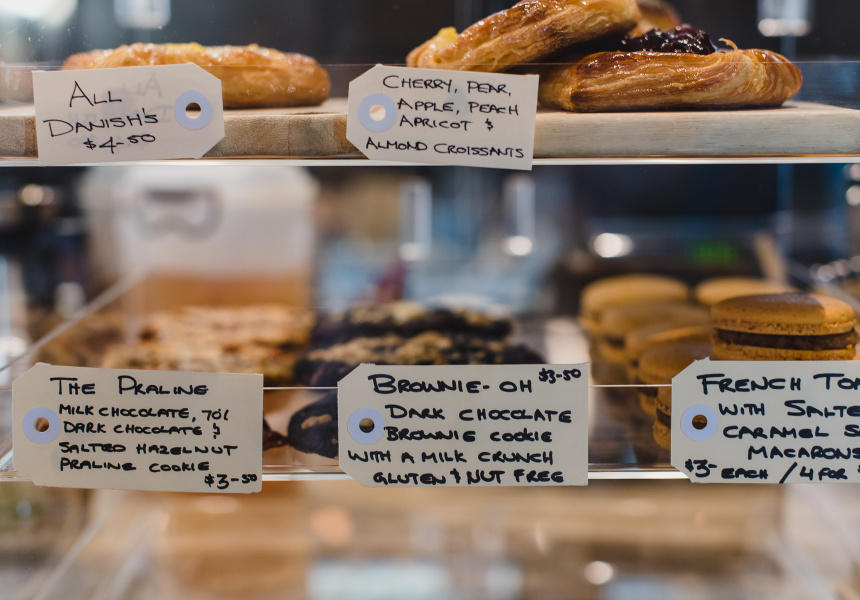 ALL
DANISH'S
$4-50
CHERRY, PEAR,
APPLE, PEACH
APRICOT &
ALMOND CROISSANTS
THE PRALINE
MILK CHOCOLATE, 70%
DARK CHOCOLATE &
SALTED HAZELNUT
PRALINE COOKIE
$3-50
BROWNIE-OH $3-50
DARK CHOCOLATE
BROWNIE COOKIE
WITH A MILK CRUNCH
GLUTEN & NUT FREE
FRENCH TO
WITH SALTE
CARAMEL S
MACARONS
$3- EACH / 4 FOR